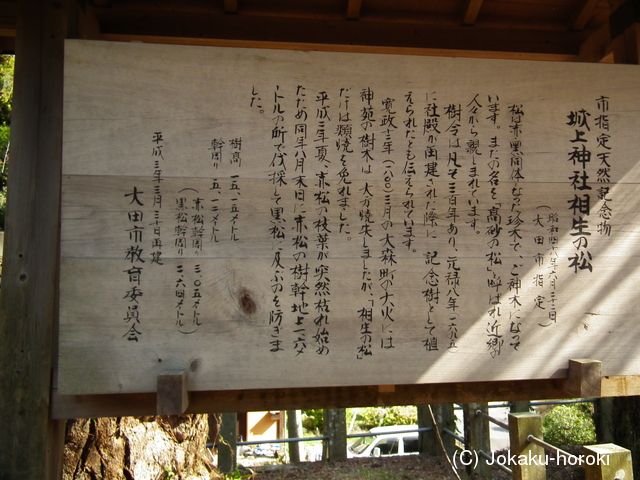 市指定天然記念物
城上神社相生の松
昭和四八年六月二十二日
(大田市指定)
松は赤黒同体となった珍木で、ご神木になって
います。またの名を「高砂の松」と呼ばれ近郷の
人々から親しまれています。
樹令は凡そ三百年あり、元禄八年(一六九五)
に社殿が再建された際に、記念樹として植
えられたとも伝えられています。
寛政十二年(一八〇〇)三月の大森町の大火には
神苑の樹木は大方焼失しましたが、「相生の松」
だけは類焼を免れました。
平成三年夏、赤松の枝葉が突然枯れ始め
たため同年八月末日に赤松の樹幹地上一六メ
ートルの所で伐採して黒松に及ぶのを防ぎま
した。
樹高 一五.一五メートル
幹周り 五.一二メートル
(赤松幹周り 三.〇五メートル
黒松幹周り 二.六四メートル)
平成三年三月三十日再建
大田市教育委員会
(C) Jokaku-horoki